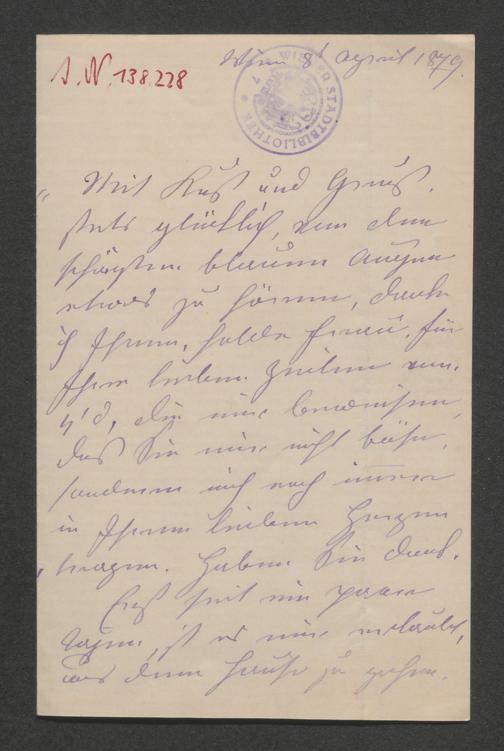 J. N. 138.228
Wien 8t April 1879.
WIENER STADTBIBLIOTHEK
„Mit Kuß und Gruß“.
stets glücklich, von den
schönsten blauen Augen
etwas zu hören, danke
ich Ihnen, holde Frau, für
Ihre lieben Zeilen vom
4' d, die mir beweisen,
daß Sie mir nicht böse,
sondern mich noch immer
in Ihrem lieben Herzen
tragen. Haben Sie Dank.
Erst seit ein paar
Tagen, ist es mir erlaubt,
aus dem Hause zu gehen.